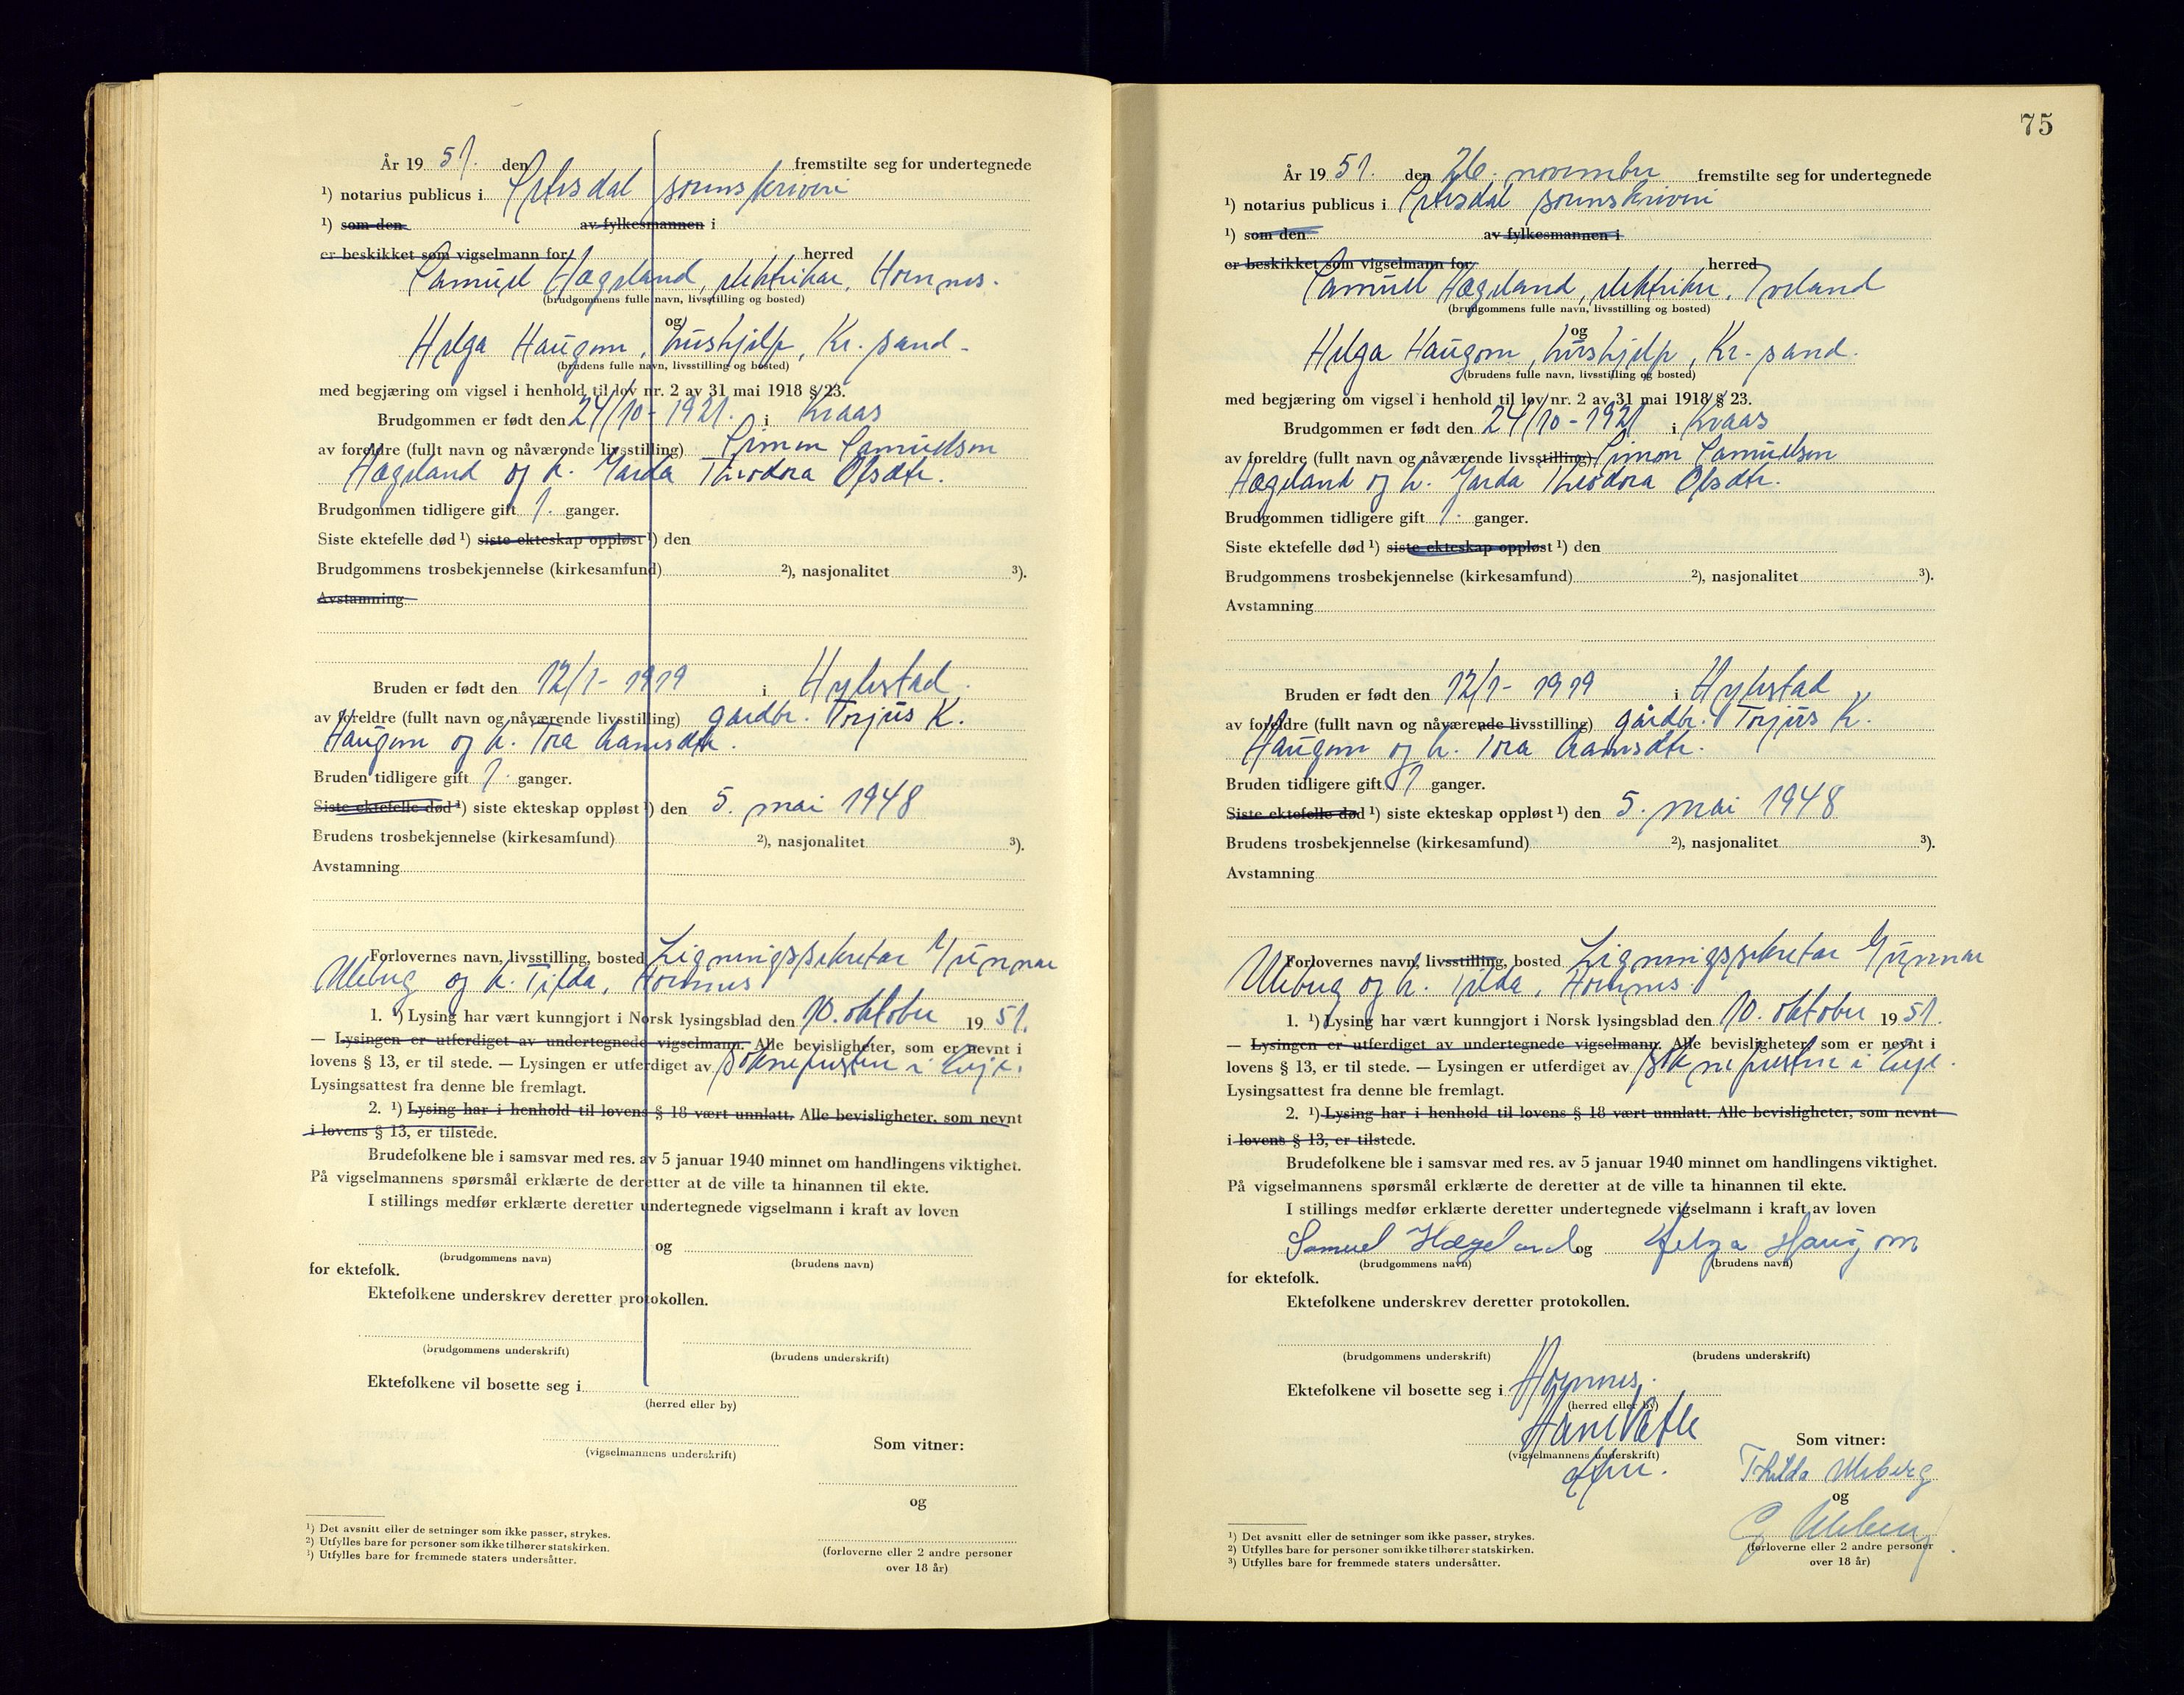 År 19 51. den fremstilte seg for undertegnede
¹) notarius publicus i Setesdal sorenskriveri
¹) som den av fylkesmannen i
er beskikket som vigselmann for herred
Samuel Hægeland, elektriker, Hornnes.
(brudgommens fulle navn, livsstilling og bosted)
og
Helga Haugom, hushjelp, Kr. sand.
(brudens fulle navn, livsstilling og bosted)
med begjæring om vigsel i henhold til lov nr. 2 av 31 mai 1918 § 23.
Brudgommen er født den 24/10 - 1921. i Kvaas
av foreldre (fullt navn og nåværende livsstilling) Simon Samuelsen
Hægeland og h. Garda Theodora Olsdtr.
Brudgommen tidligere gift 1. ganger.
Siste ektefelle død ¹) siste ekteskap oppløst ¹) den
Brudgommens trosbekjennelse (kirkesamfund) ²), nasjonalitet ³).
Avstamning
Bruden er født den 12/1 - 1919 i Hylestad.
av foreldre (fullt navn og nåværende livsstilling) gårdbr. Torjus K.
Haugom og h. Tora
Bruden tidligere gift 1. ganger.
Siste ektefelle død ¹) siste ekteskap oppløst ¹) den 5. mai 1948
Brudens trosbekjennelse (kirkesamfund) ²), nasjonalitet ³).
Avstamning
Forlovernes navn, livsstilling, bosted Ligningssekretær Gunnar
Uleberg og h. Tilda, Hornnes
1. ¹) Lysing har vært kunngjort i Norsk lysingsblad den 10. oktober 19 51.
— Lysingen er utferdiget av undertegnede vigselmann. Alle bevisligheter, som er nevnt i
lovens § 13, er til stede. — Lysingen er utferdiget av soknepresten i Evje.
Lysingsattest fra denne ble fremlagt.
2. ¹) Lysing har i henhold til lovens § 18 vært unnlatt. Alle bevisligheter, som nevnt
i lovens § 13, er tilstede.
Brudefolkene ble i samsvar med res. av 5 januar 1940 minnet om handlingens viktighet.
På vigselmannens spørsmål erklærte de deretter at de ville ta hinannen til ekte.
I stillings medfør erklærte deretter undertegnede vigselmann i kraft av loven
og
(brudgommens navn) (brudens navn)
for ektefolk.
Ektefolkene underskrev deretter protokollen.
(brudgommens underskrift) (brudens underskrift)
Ektefolkene vil bosette seg i
(herred eller by)
(vigselmannens underskrift)
Som vitner:
og
(forloverne eller 2 andre personer
over 18 år)
¹) Det avsnitt eller de setninger som ikke passer, strykes.
²) Utfylles bare for personer som ikke tilhører statskirken.
³) Utfylles bare for fremmede staters undersåtter.
75
År 19 51. den 26. november fremstilte seg for undertegnede
¹) notarius publicus i Setesdal sorenskriveri
¹) som den av fylkesmannen i
er beskikket som vigselmann for herred
Samuel Hægeland, elektriker, Iveland
(brudgommens fulle navn, livsstilling og bosted)
og
Helga Haugom, hushjelp, Kr. sand.
(brudens fulle navn, livsstilling og bosted)
med begjæring om vigsel i henhold til lov nr. 2 av 31 mai 1918 § 23.
Brudgommen er født den 24/10 - 1921 i Kvaas
av foreldre (fullt navn og nåværende livsstilling) Simon Samuelsen
Hægeland og h. Garda Theodora Olsdtr.
Brudgommen tidligere gift 1. ganger.
Siste ektefelle død ¹) siste ekteskap oppløst ¹) den
Brudgommens trosbekjennelse (kirkesamfund) ²), nasjonalitet ³).
Avstamning
Bruden er født den 12/1 - 1919 i Hylestad
av foreldre (fullt navn og nåværende livsstilling) gårdbr. Torjus K.
Haugom og h. Tora
Bruden tidligere gift 1 ganger.
Siste ektefelle død ¹) siste ekteskap oppløst ¹) den 5. mai 1948
Brudens trosbekjennelse (kirkesamfund) ²), nasjonalitet ³).
Avstamning
Forlovernes navn, livsstilling, bosted Ligningssekretær Gunnar
Uleberg og h. Tilda, Hornnes.
1. ¹) Lysing har vært kunngjort i Norsk lysingsblad den 10. oktober 19 51.
— Lysingen er utferdiget av undertegnede vigselmann. Alle bevisligheter, som er nevnt i
lovens § 13, er til stede. — Lysingen er utferdiget av soknepresten i Evje.
Lysingsattest fra denne ble fremlagt.
2. ¹) Lysing har i henhold til lovens § 18 vært unnlatt. Alle bevisligheter, som nevnt
i lovens § 13, er tilstede.
Brudefolkene ble i samsvar med res. av 5 januar 1940 minnet om handlingens viktighet.
På vigselmannens spørsmål erklærte de deretter at de ville ta hinannen til ekte.
I stillings medfør erklærte deretter undertegnede vigselmann i kraft av loven
Samuel Hægeland og Helga Haugom
(brudgommens navn) (brudens navn)
for ektefolk.
Ektefolkene underskrev deretter protokollen.
(brudgommens underskrift) (brudens underskrift)
Ektefolkene vil bosette seg i Hornnes.
(herred eller by)
(vigselmannens underskrift)
Som vitner:
Thilda Uleberg
og
G Uleberg
(forloverne eller 2 andre personer
over 18 år)
¹) Det avsnitt eller de setninger som ikke passer, strykes.
²) Utfylles bare for personer som ikke tilhører statskirken.
³) Utfylles bare for fremmede staters undersåtter.